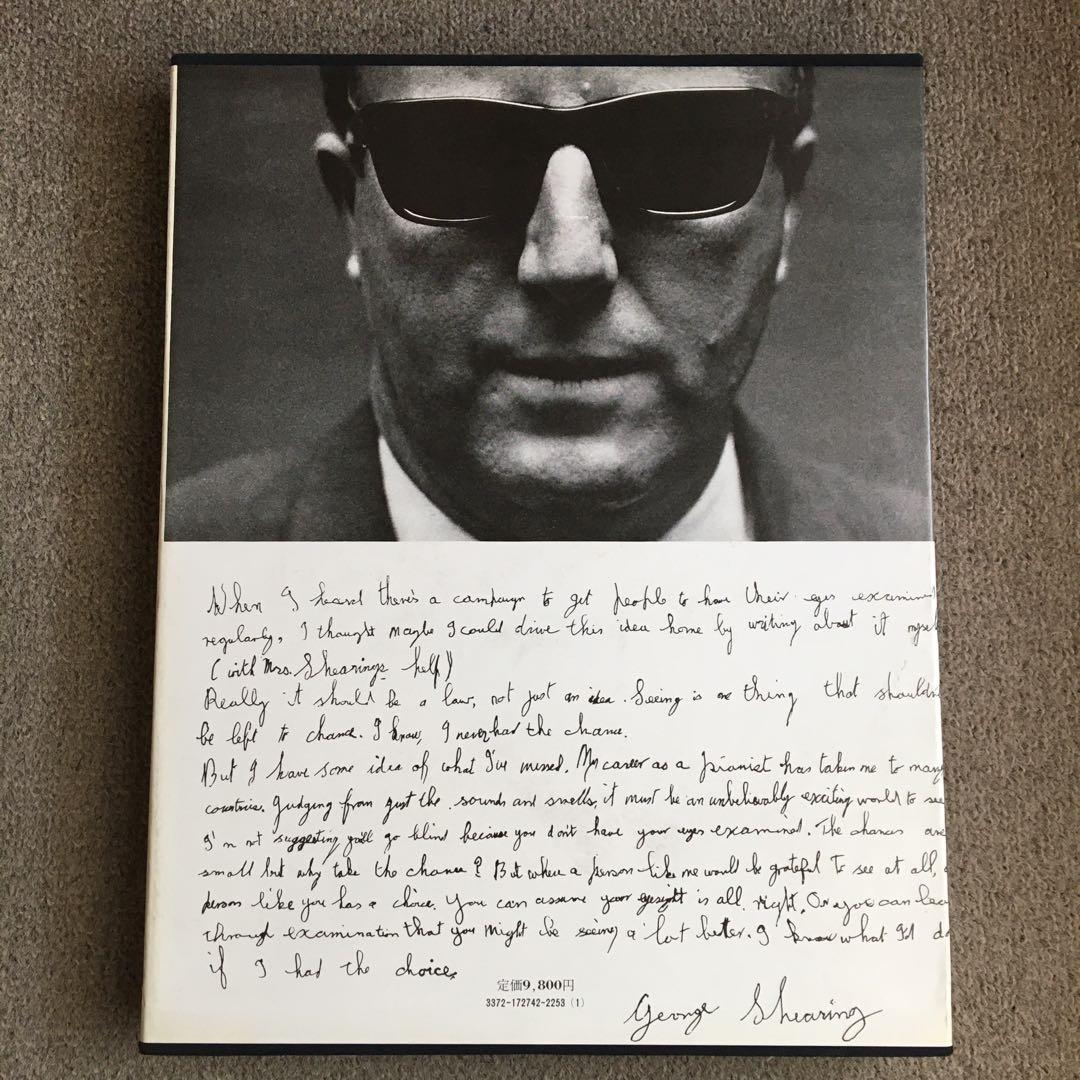 When I heard there's a campaign to get people to have their eyes examined
regularly, I thought maybe I could drive this idea home by writing about it myself
(with Mrs. Shearing's help)
Really it should be a law, not just an idea. Seeing is one thing that shouldn't
be left to chance. I know, I never had the chance.
But I have some idea of what I've missed. My career as a pianist has taken me to many
countries. Judging from just the sounds and smells, it must be an unbelievably exciting world to see
I'm not suggesting you'll go blind because you don't have your eyes examined. The chances are
small but why take the chance? But when a person like me would be grateful to see at all, a
person like you has a choice. You can assume your eyesight is all right. Or you can learn
through examination that you might be seeing a lot better. I know what I'd do
if I had the choice.
定価9,800円
3372-172742-2253 (1)
George Shearing